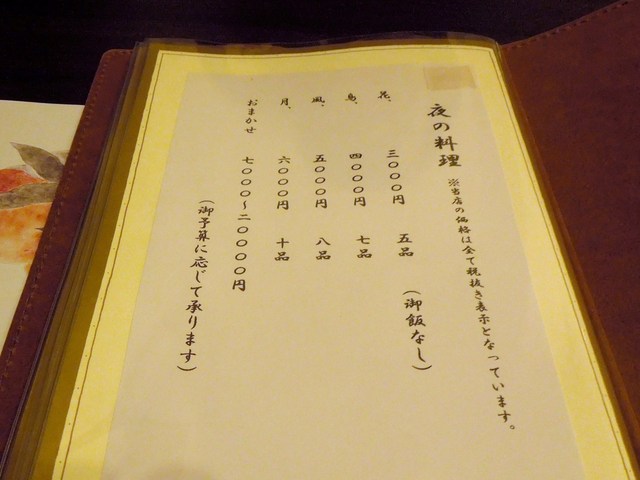 夜の料理 ※当店の価格は全て税抜き表示となっています。
花、 三〇〇〇円 五品 (御飯なし)
鳥、 四〇〇〇円 七品
風、 五〇〇〇円 八品
月、 六〇〇〇円 十品
おまかせ 七〇〇〇~二〇〇〇〇円
(御予算に応じて承ります)